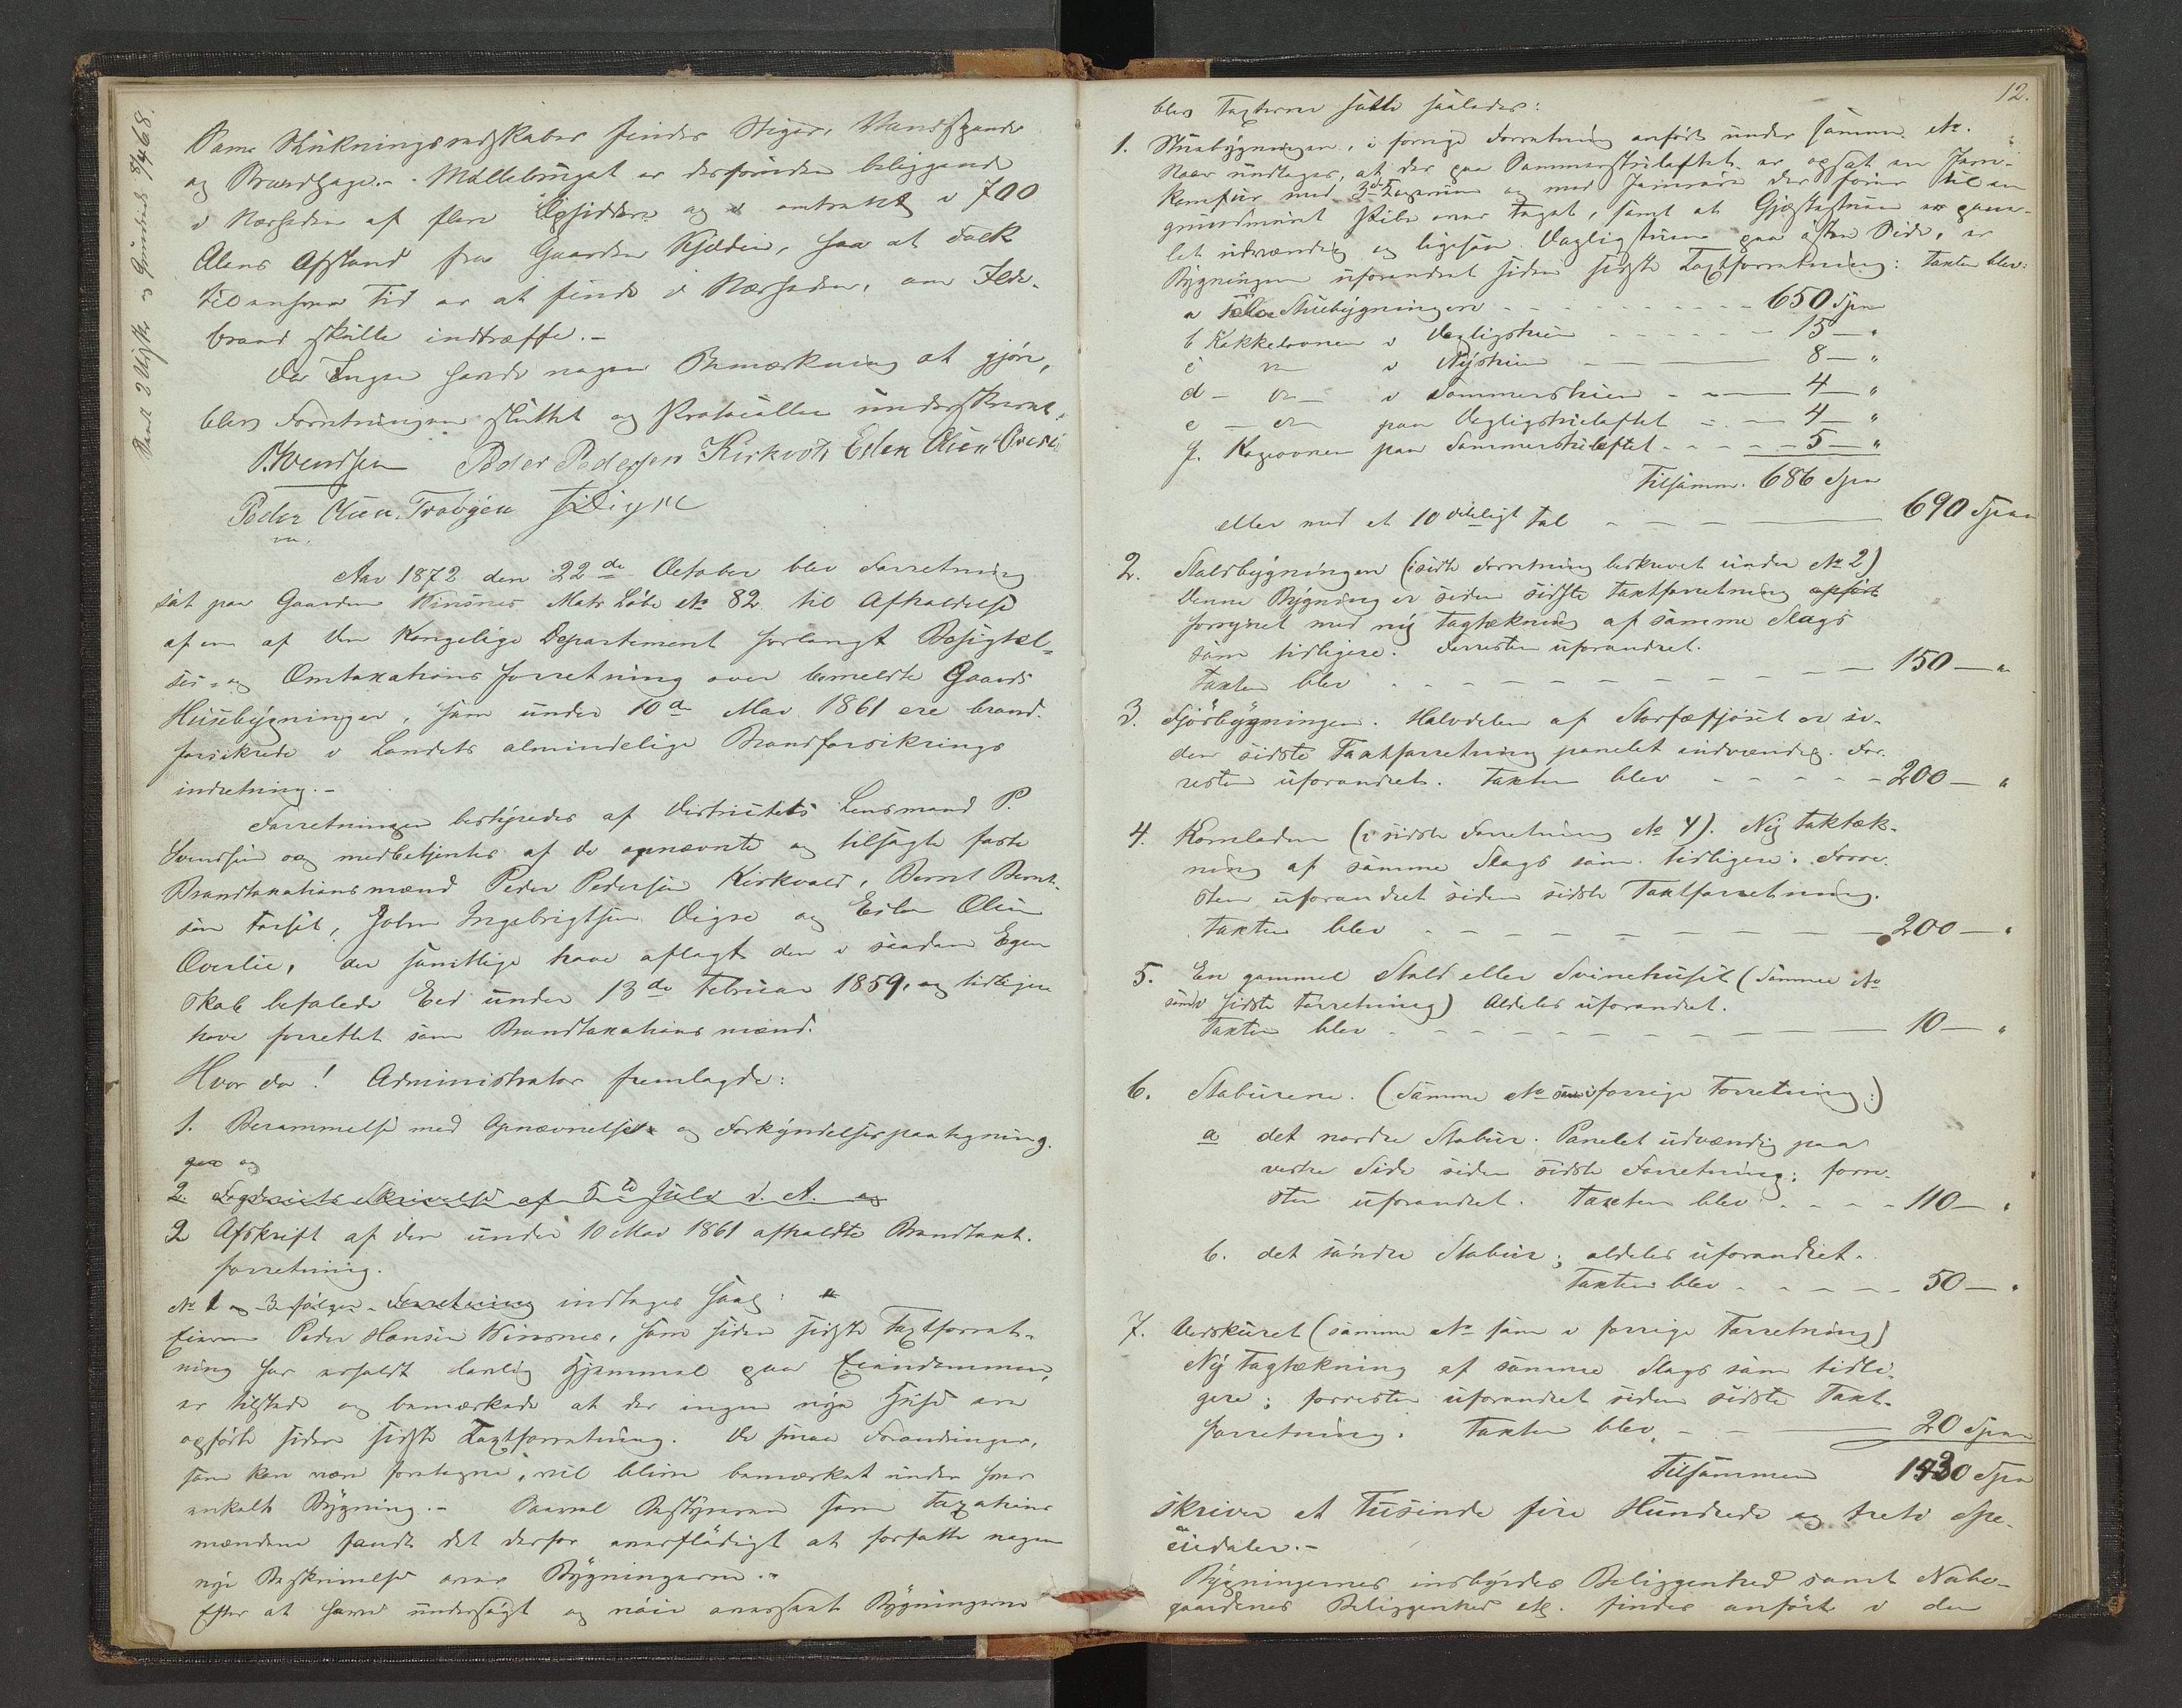 Som Slukningsredskaber findes Stiger, Vandspande
og Brandhage. - Møllebruget er desforuden beliggende
i Nærheden af flere Opsiddere og i omtrent 700
Alens Afstand fra Gaarden Kjelden, saa at Folk
til enhver Tid er at finde i Nærheden, om Ilde-
brand skulle indtræffe. -
Da Ingen havde nogen Bemærkning at gjøre,
blev Forretningen sluttet og Protocollen underskrevet.
P. Svendsen Peder Pedersen Kirkvold Esten Olsen Overli
Peder Olsen
Aar 1872 den 22de October blev Forretning
sat paa Gaarden Vinsnes Matr Løbe No 82 til Afholdelse
af en af den Kongelige Departement forlangt Besigtel-
ses- og Omtaxationsforretning over bemeldte Gaards
Husebygninger, som under 10de Mai 1861 ere brand-
forsikrede i Landets almindelige Brandforsikrings
indretning. -
Forretningen bestyredes af Districtets Lensmand P.
Svendsen og medbetjentes af de opnævnte og tilsagte faste
Brandtaxationsmænd Peder Pedersen Kirkvold, Bernt Bernt-
sen Forset, John Ingebrigtsen Digre og Esten Olsen
Overlie, der samtlige have aflagt den i saadan Egen
skab befalede Eed under 13de Februar 1859, og tidligere
have forrettet som Brandtaxationsmænd.
Hvor da! Administrator fremlagde:
1. Berammelse med Opnævnelses og Forkyndelsespaategning.
og
2. Fogderiets Skrivelse af 5te Juli d. A. og
2 Afskrift af den under 10 Mai 1861 afholdte Brandtaxt-
forretning.
No 1 og 3 følger. Forretning indtages saal:
Eieren Peder Hansen Vinsnes, som siden sidste Taxtforret-
ning har erholdt lovlig Hjemmel paa Eiendommen,
er tilstede og bemærkede at der ingen nye Huse ere
opførte siden sidste Taxtforretning. De smaa Forandringer,
som kan være foretagne, vil blive bemærket under hver
enkelt Bygning. - Saavel Bestyreren som Taxations
mændene fandt det derfor overflødigt at forfatte nogen
nye Beskrivelse over Bygningerne. -
Efter at have undersøgt og nøie overseet Bygningerne
12.
blev Taxterne satte saaledes:
1. Stuebygningen, i forrige Forretning anført under samme No.
Naar undtages, at der paa Sommerstueloftet er opsat en Jern-
komfur med 3de og med Jernrør der fører til en
grundmuret Pibe over Taget, samt at Gjæstestuen er pane-
let udvændig og ligesaa Dagligstuen paa østre Side, er
Bygningen uforandret siden sidste Taxtforretning: Taxten blev:
a Stuebygningen - - - 650 Spn
b Kakkelovnen i Dagligstuen - - - 15 - "
c do i Nystuen - - - 8 - "
d - do - i Sommerstuen - - - 4 - "
e - do paa Dagligstueloftet - - - 4 - "
f. Kogeovnen paa Sommerstueloftet - - - 5 - "
Tilsamm. 686 Spn
eller med et 10 deleligt Tal - - - 690 Spn
2. Staldbygningen (i sidste Forretning beskrevet under No 2)
Denne Bygning er siden sidste Taxtforretning opført
forsynet med ny Tagtækning af samme Slags
som tidligere. Forresten uforandret.
Taxten blev - - - 150 - "
3. Fjøsbygningen. Halvdelen af Storfæfjøset er si-
den sidste Taxtforretning panelet indvændig. For-
resten uforandret. Taxten blev - - - 200 - "
4. Kornladen (i sidste Forretning No 4). Ny Taktæk-
ning af samme Slags som tidligere. Forre-
sten uforandret siden sidste Taxtforretning.
Taxten blev - - - 200 - "
5. En gammel Stald eller Svinehuset (Samme No
som i sidste Forretning) Aldeles uforandret.
Taxten blev - - - 10 - "
6. Staburene. (Samme No som i forrige Forretning:)
a det nordre Stabur. Panelet udvændig paa
vestre Side siden sidste Forretning; forre-
sten uforandret. Taxten blev - - - 110 - "
b. det søndre Stabur; aldeles uforandret.
Taxten blev - - - 50 - "
7. Vedskuret (samme No som i forrige Forretning)
Ny Tagtækning af samme Slags som tidli-
gere; forresten uforandret siden sidste Taxt-
forretning. Taxten blev - - - 20 Spn
Tilsammen 1430 Spn
skriver et Tusinde fire Hundrede og treti Spe-
ciedaler. -
Bygningernes indbyrdes Beliggenhed samt Nabo-
gaardenes Beliggenhed etc. findes anført i den